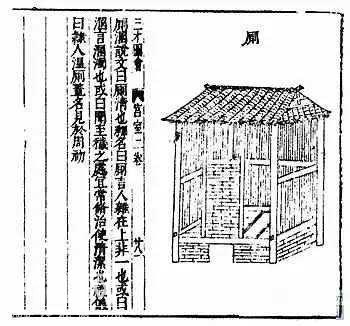 厠
三才圖會 宮室二卷
厠溷說文曰厠清也釋名曰厠言人雜在上非一也或曰
溷言溷濁也或曰圊至穢之處宜常脩治使潔清也儀
曰隸人涅厠蓋名見於周初